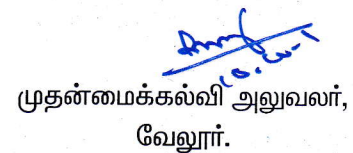 முதன்மைக்கல்வி அலுவலர்,
வேலூர்.